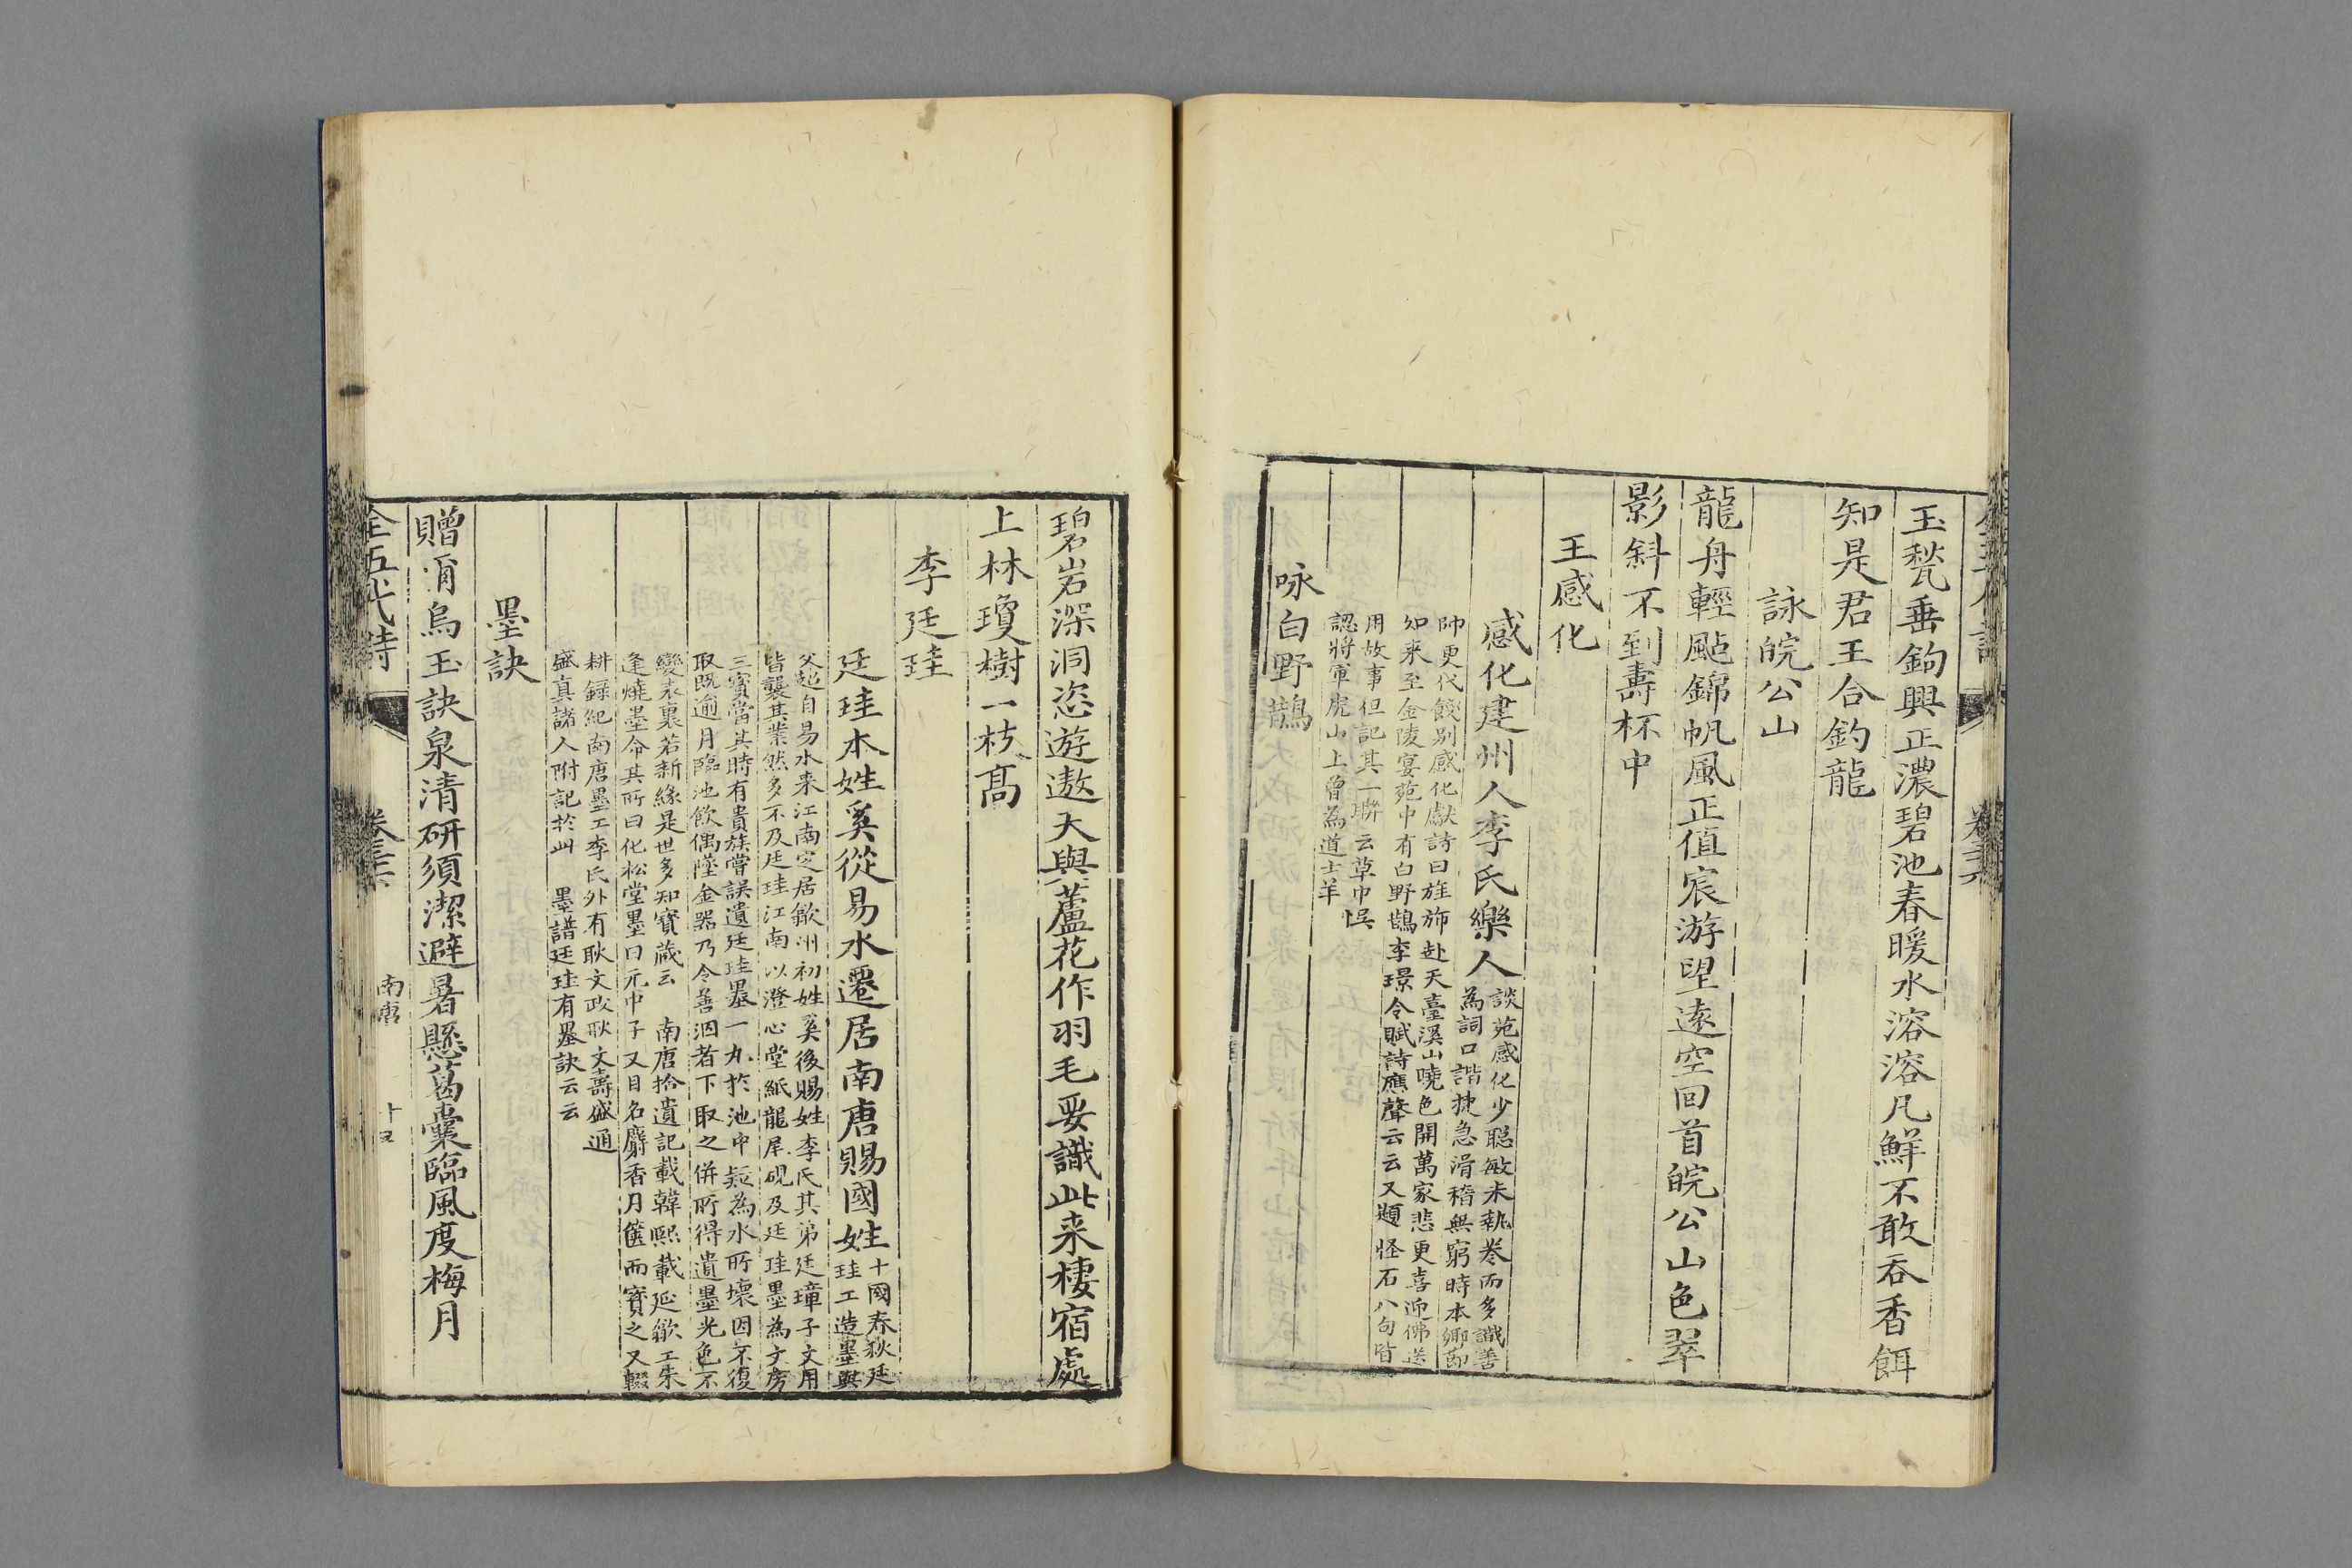 玉甃垂鉤興正濃碧池春暖水溶溶凡鮮不敢吞香餌
知是君王合釣龍
詠皖公山
龍舟輕颭錦帆風正值宸游望遠空回首皖公山色翠
影斜不到壽杯中
王感化
感化建州人李氏樂人
談苑感化少聰敏未執卷而多識善
為詞口諧捷急滑稽無窮時本鄉節
帥更代餞別感化獻詩曰旌斾赴天臺溪山曉色開萬家悲更喜迎佛送
如来至金陵宴苑中有白野鵲李璟令賦詩應聲云云又題怪石八句皆
用故事但記其一聯云草中悞
認將軍虎山上曾為道士羊
咏白野鵲
碧岩深洞恣遊遨天與蘆花作羽毛要識此来棲宿處
上林瓊樹一枝高
李廷珪
廷珪本姓奚從易水遷居南唐賜國姓
十國春秋廷
珪工造墨與
父超自易水来江南定居歙州初姓奚後賜姓李氏其弟廷璋子文用
皆襲其業然多不及廷珪江南以澄心堂紙龍尾硯及廷珪墨為文房
三寳當其時有貴族嘗誤遺廷珪墨一丸於池中疑為水所壞因不復
取既逾月臨池飲偶墜金器乃令善泅者下取之併所得遺墨光色不
變表裏若新緣是世多知寳藏云 南唐拾遺記載韓熙載延歙工朱
逢燒墨命其所曰化松堂墨曰元中子又目名麝香月匱而寳之又輟
耕錄紀南唐墨工李氏外有耿文政耿文壽盛通
盛真諸人附記於此 墨譜廷珪有墨訣云云
墨訣
贈爾烏玉訣泉清研須潔避暑懸葛囊臨風度梅月
全五代詩
南唐